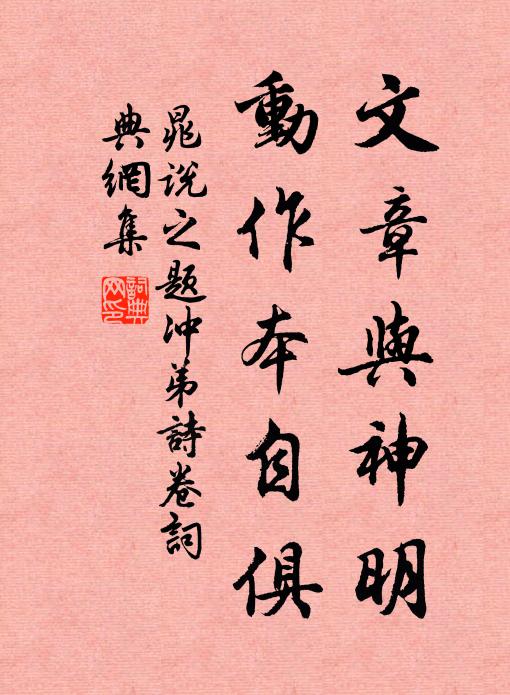 文章與神明
動作本自俱
晁說之題沖弟詩卷詞
典網集
詞典網印